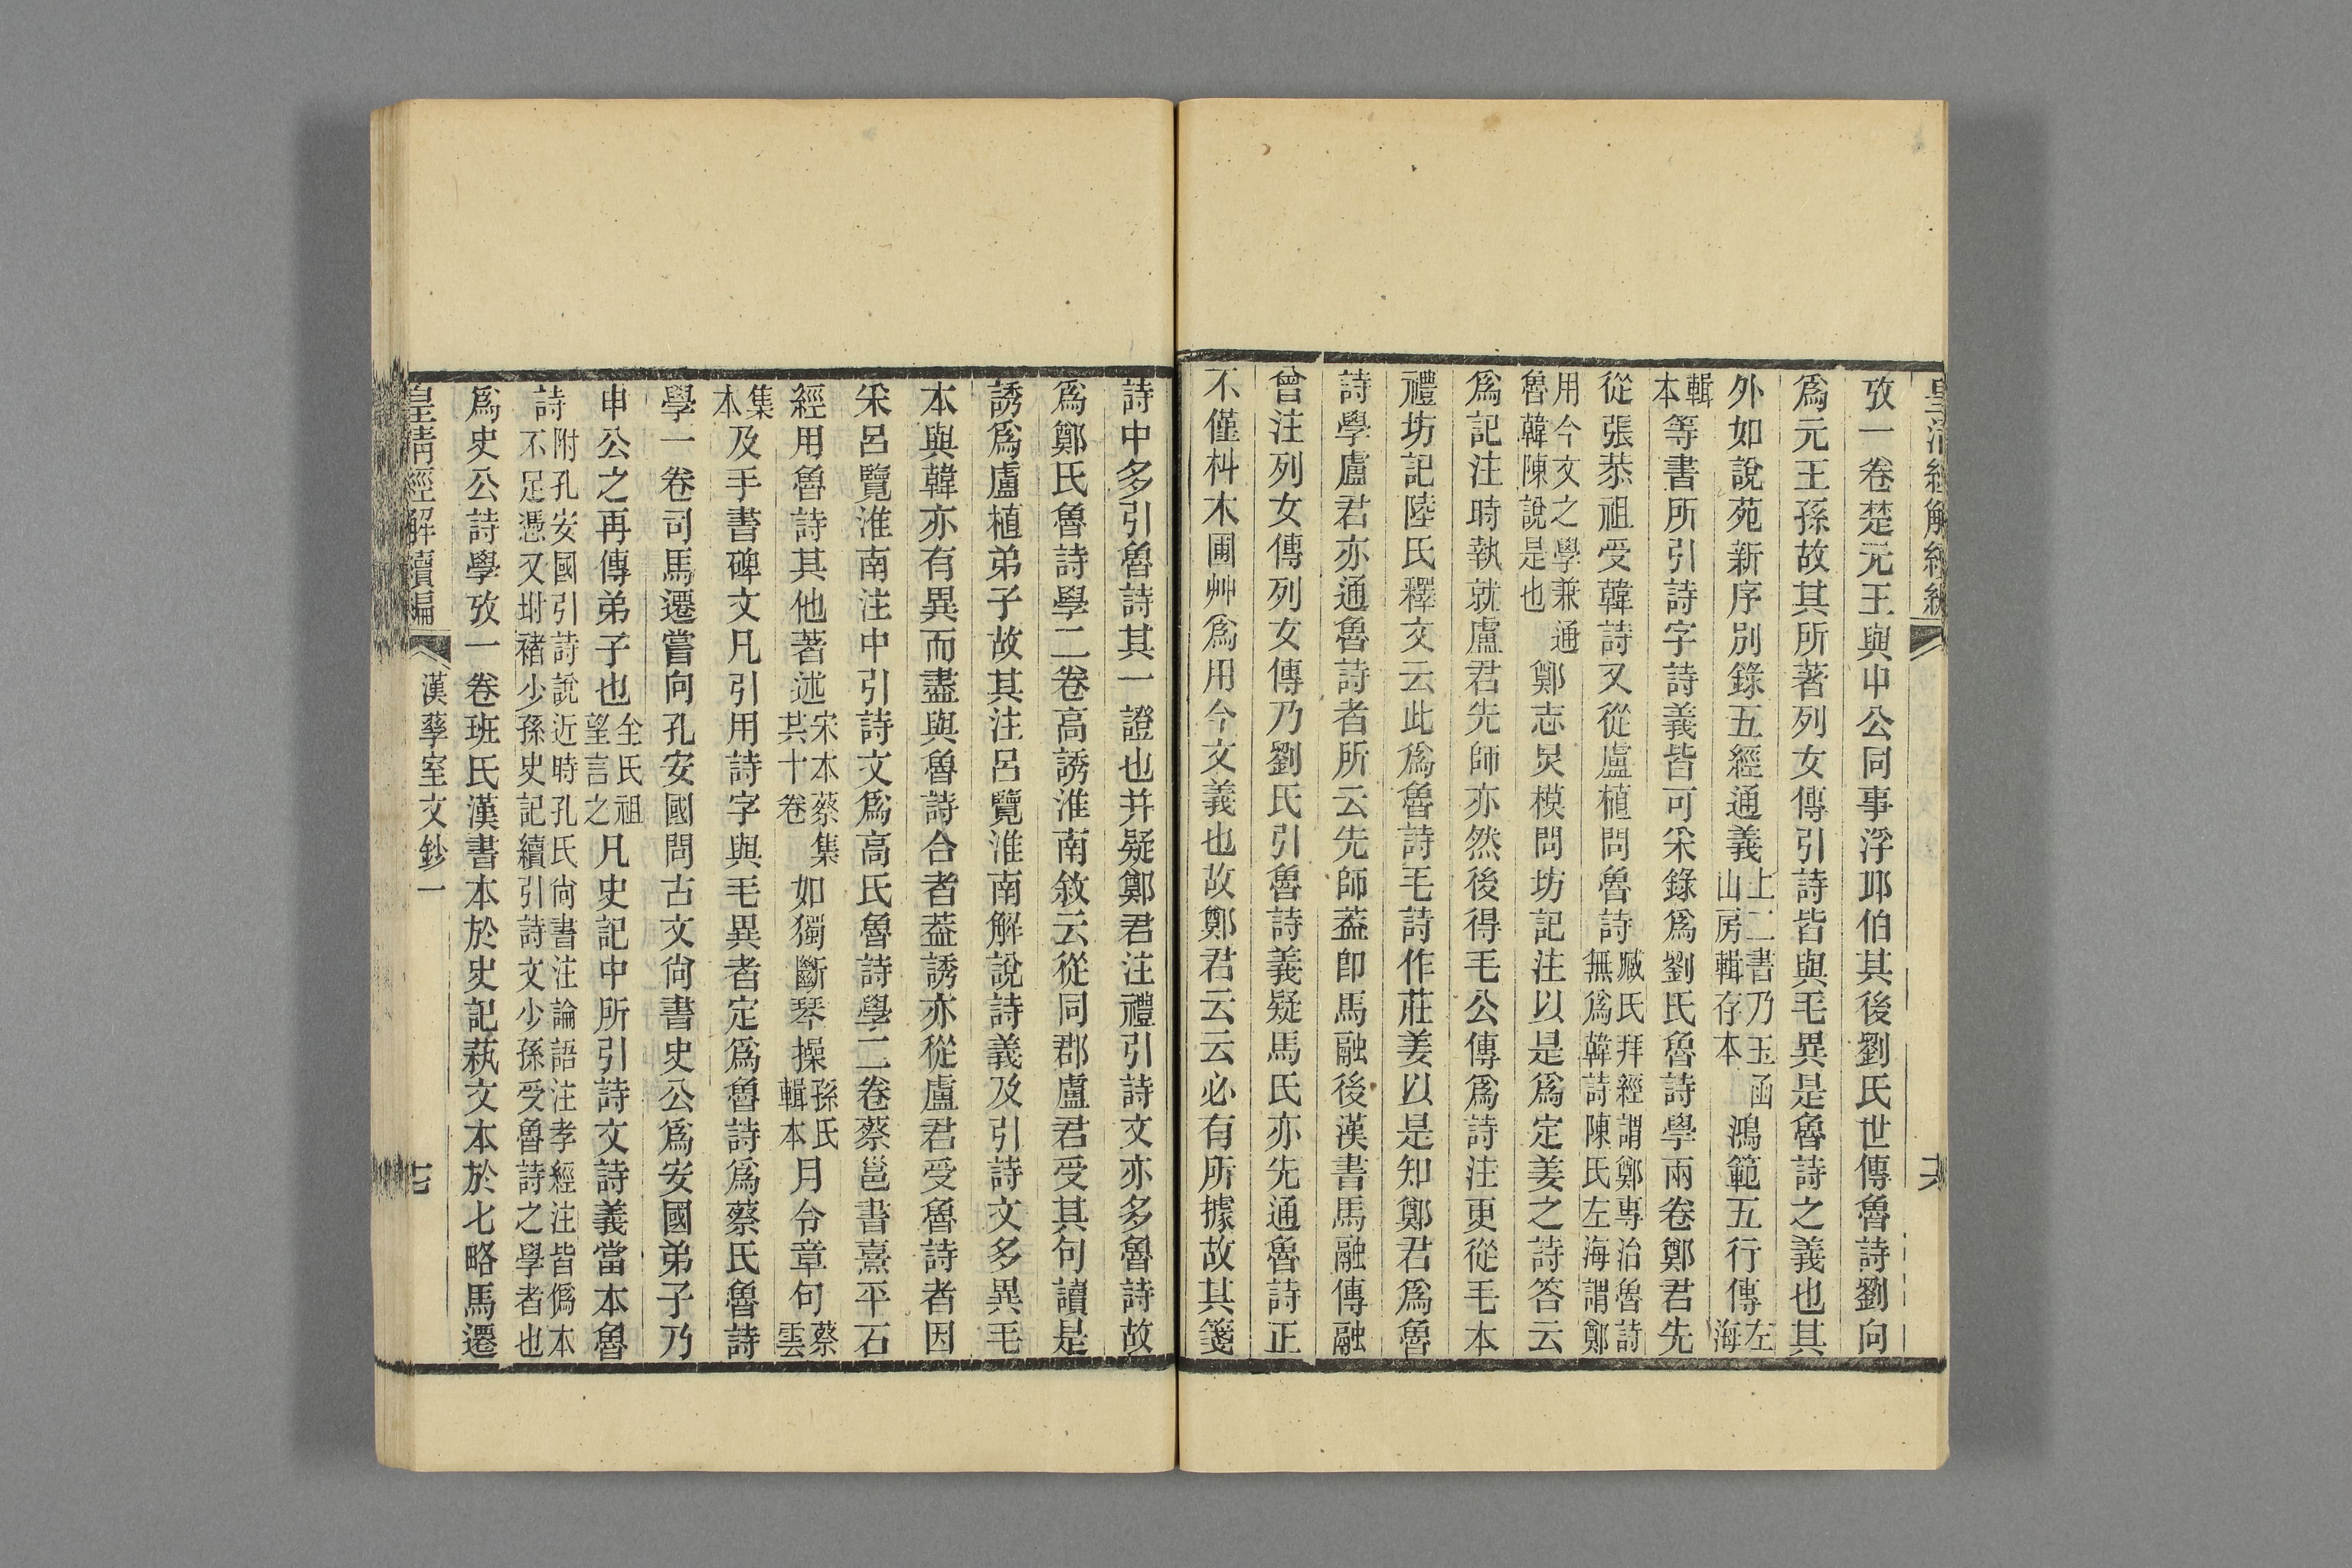 攷一卷楚元王與申公同事浮邱伯其後劉氏世傳魯詩劉向
爲元王孫故其所著列女傳引詩皆與毛異是魯詩之義也其
外如說苑新序別錄五經通義上二書乃玉函山房輯存本鴻範五行傳左海
輯本等書所引詩字詩義皆可采錄爲劉氏魯詩學兩卷鄭君先
從張恭祖受韓詩又從盧植問魯詩臧氏拜經謂鄭專治魯詩無爲韓詩陳氏左海謂鄭
用今文之學兼通魯韓陳說是也鄭志炅模問坊記注以是爲定姜之詩答云
爲記注時執就盧君先師亦然後得毛公傳爲詩注更從毛本
禮坊記陸氏釋文云此爲魯詩毛詩作莊姜以是知鄭君爲魯
詩學盧君亦通魯詩者所云先師葢卽馬融後漢書馬融傳融
曾注列女傳列女傳乃劉氏引魯詩義疑馬氏亦先通魯詩正
不僅枓木圃艸爲用今文義也故鄭君云云必有所據故其箋
詩中多引魯詩其一證也幷疑鄭君注禮引詩文亦多魯詩故
爲鄭氏魯詩學二卷高誘淮南敘云從同郡盧君受其句讀是
誘爲盧植弟子故其注呂覽淮南解說詩義及引詩文多異毛
本與韓亦有異而盡與魯詩合者葢誘亦從盧君受魯詩者因
采呂覽淮南注中引詩文爲高氏魯詩學二卷蔡邕書熹平石
經用魯詩其他著述宋本蔡集共十卷如獨斷琴操孫氏輯本月令章句蔡雲
集本及手書碑文凡引用詩字與毛異者定爲魯詩爲蔡氏魯詩
學一卷司馬遷嘗向孔安國問古文尙書史公爲安國弟子乃
申公之再傳弟子也全氏祖望言之凡史記中所引詩文詩義當本魯
詩附孔安國引詩說近時孔氏尙書注論語注孝經注皆僞本不足憑又坿褚少孫史記續引詩文少孫受魯詩之學者也
爲史公詩學攷一卷班氏漢書本於史記蓺文本於七略馬遷
皇淸經解續編
漢孳室文鈔一
十七